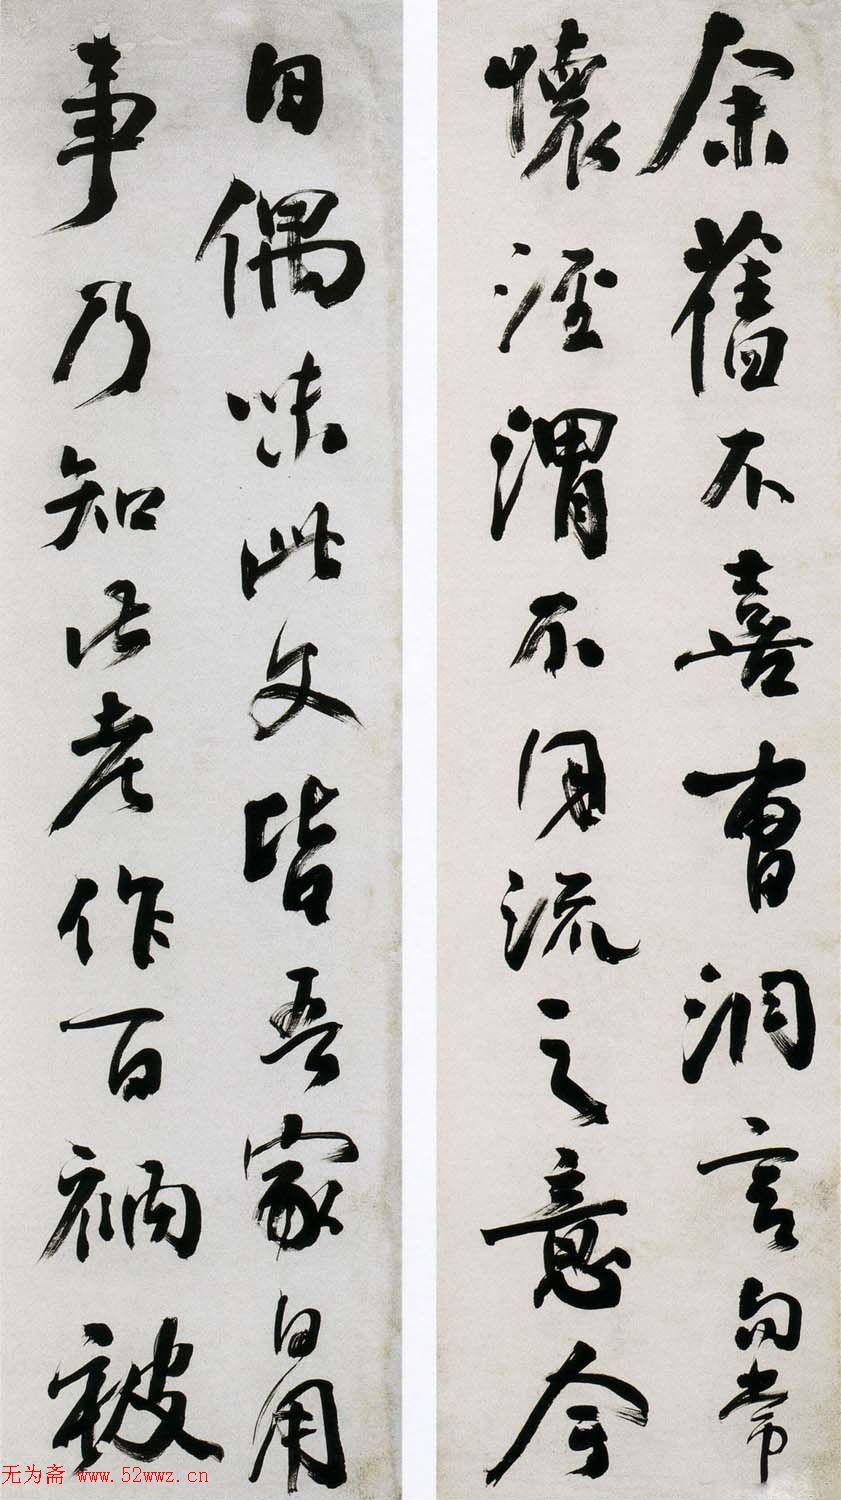 余舊不喜曹洞言句常
懷涇渭不同流之意今
日偶味此文皆吾家日用
事乃知此老作百衲被
无为斋 www.52wwz.cn